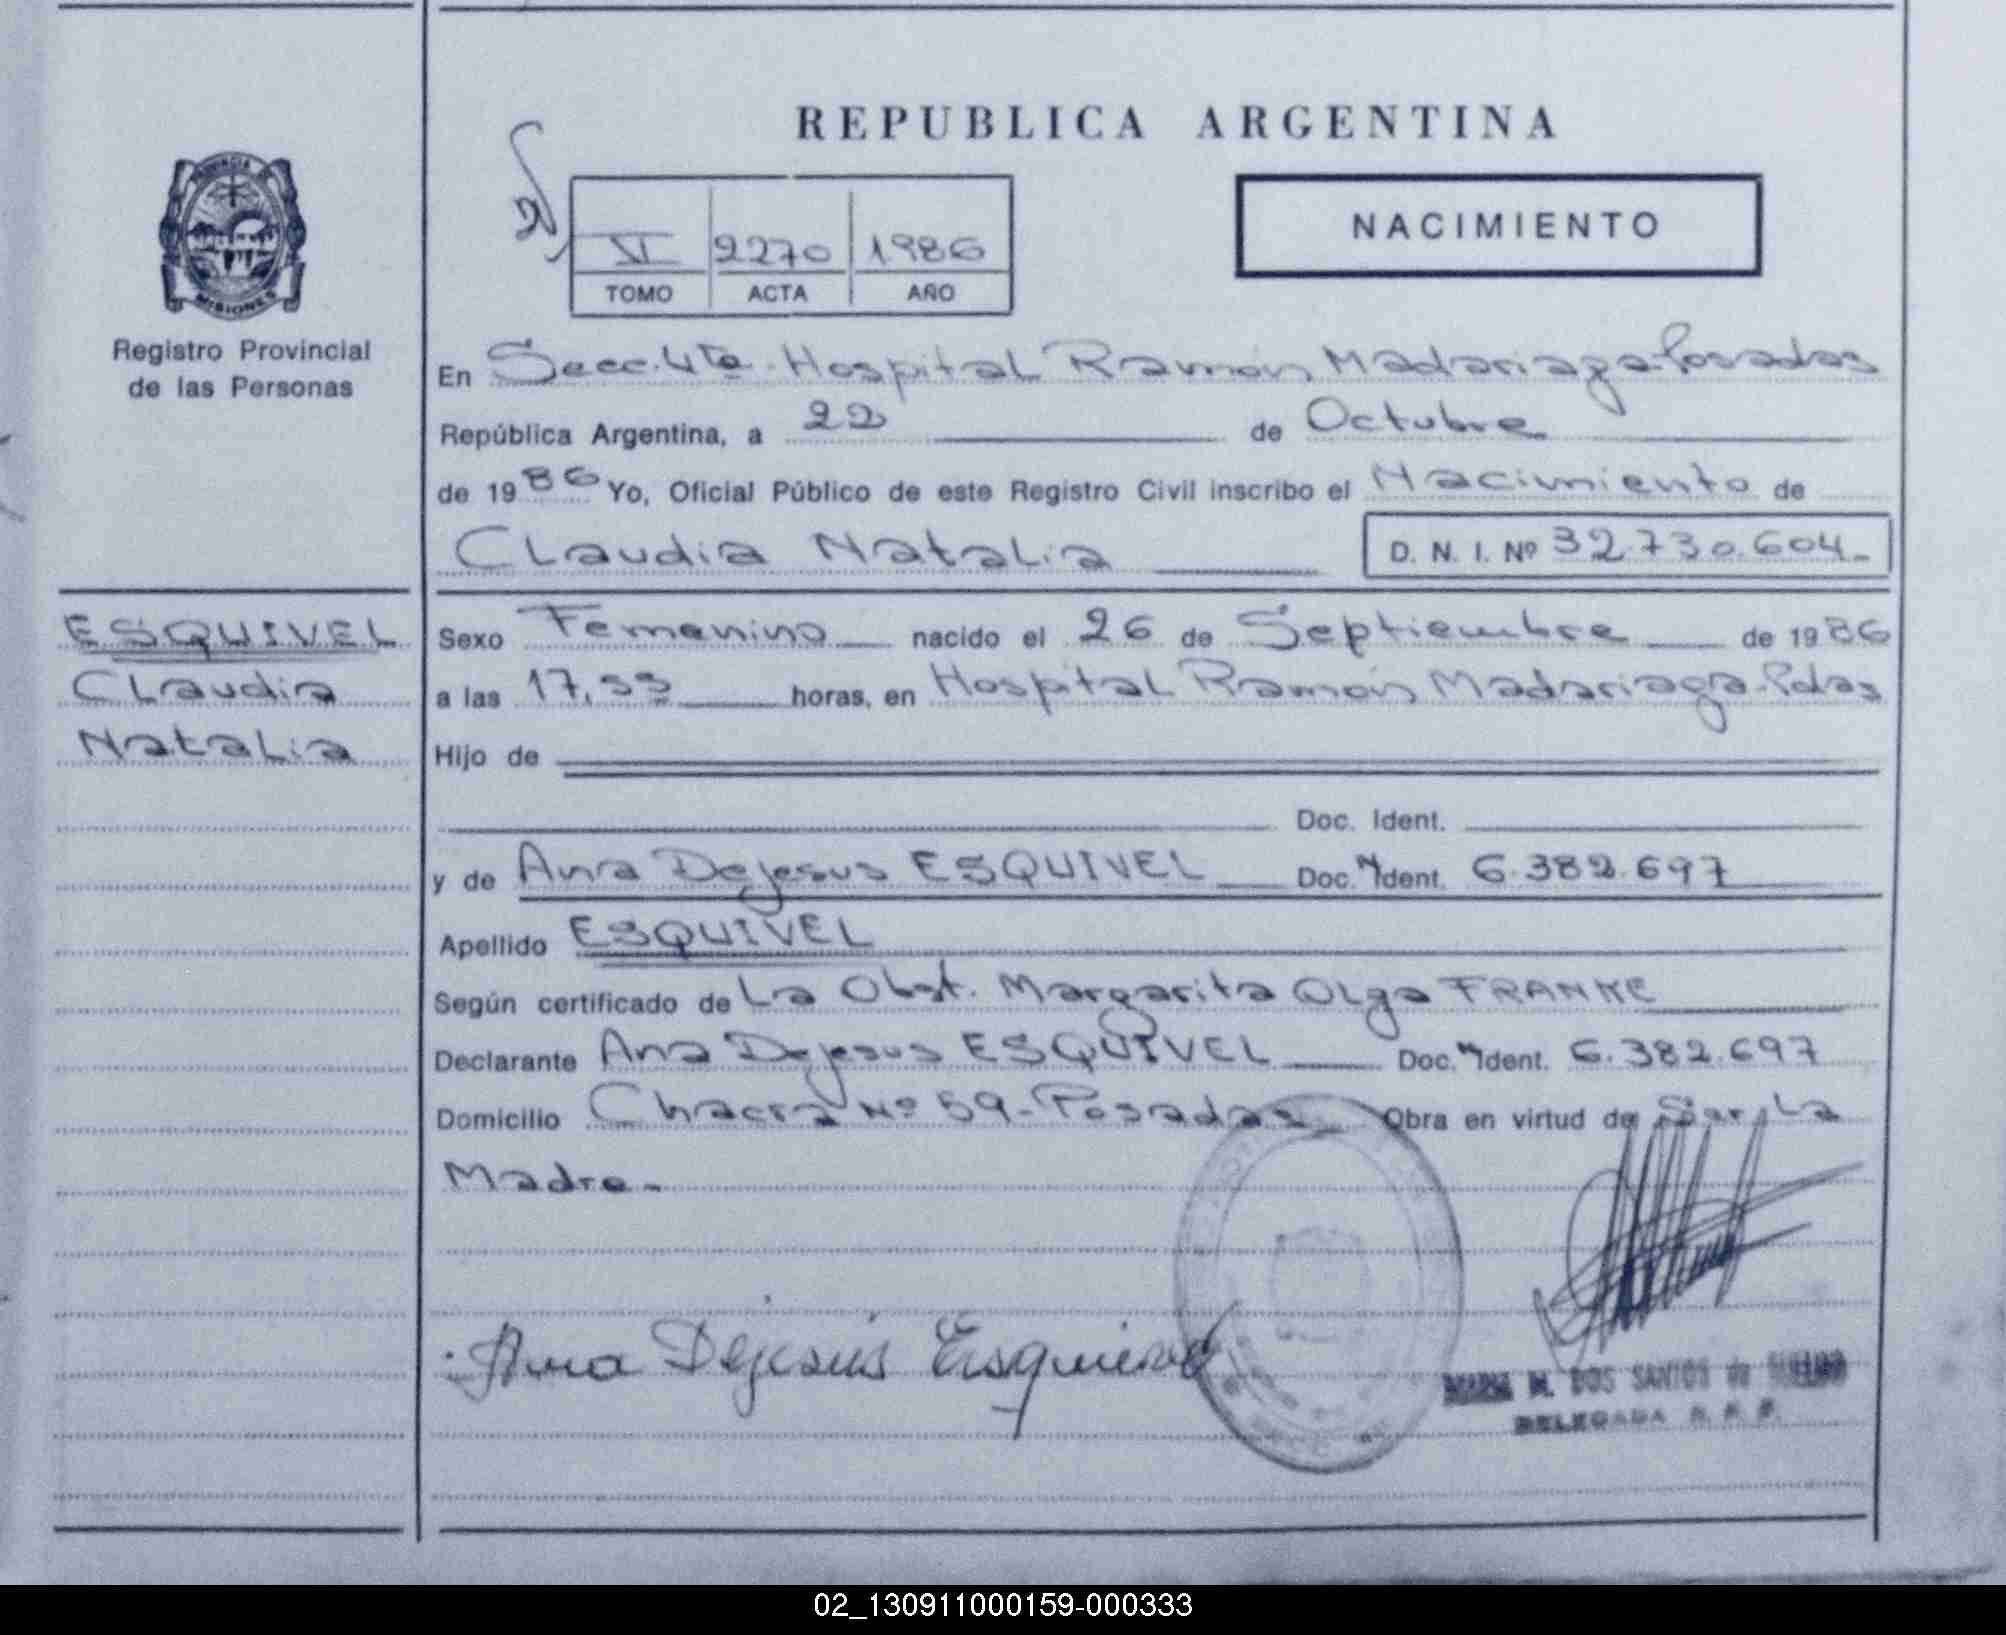 REPUBLICA ARGENTINA
PROVINCIA
MISIONES
Registro Provincial
de las Personas
NACIMIENTO
VI 2270 1986
TOMO ACTA AÑO
En Secc. 4ta. Hospital Ramón Madariaga-Posadas
República Argentina, a 22 de Octubre
de 1986 Yo, Oficial Público de este Registro Civil inscribo el Nacimiento de
Claudia Natalia D. N. I. Nº 32.730.604.-
ESQUIVEL
Claudia
Natalia
Sexo Femenino nacido el 26 de Septiembre de 1986
a las 17,55 horas, en Hospital Ramón Madariaga-Pdas
Hijo de
Doc. Ident.
y de Ana Dejesus ESQUIVEL Doc. Ident. 6.382.697
Apellido ESQUIVEL
Según certificado de La Obst. Margarita Olga FRANKE
Declarante Ana Dejesus ESQUIVEL Doc. Ident. 6.382.697
Domicilio Chacra Nº 59-Posadas Obra en virtud de Ser La
Madre.-
Ana Dejesús Esquivel
M. DOS SANTOS de
DELEGADA R. P. P.
02_130911000159-000333